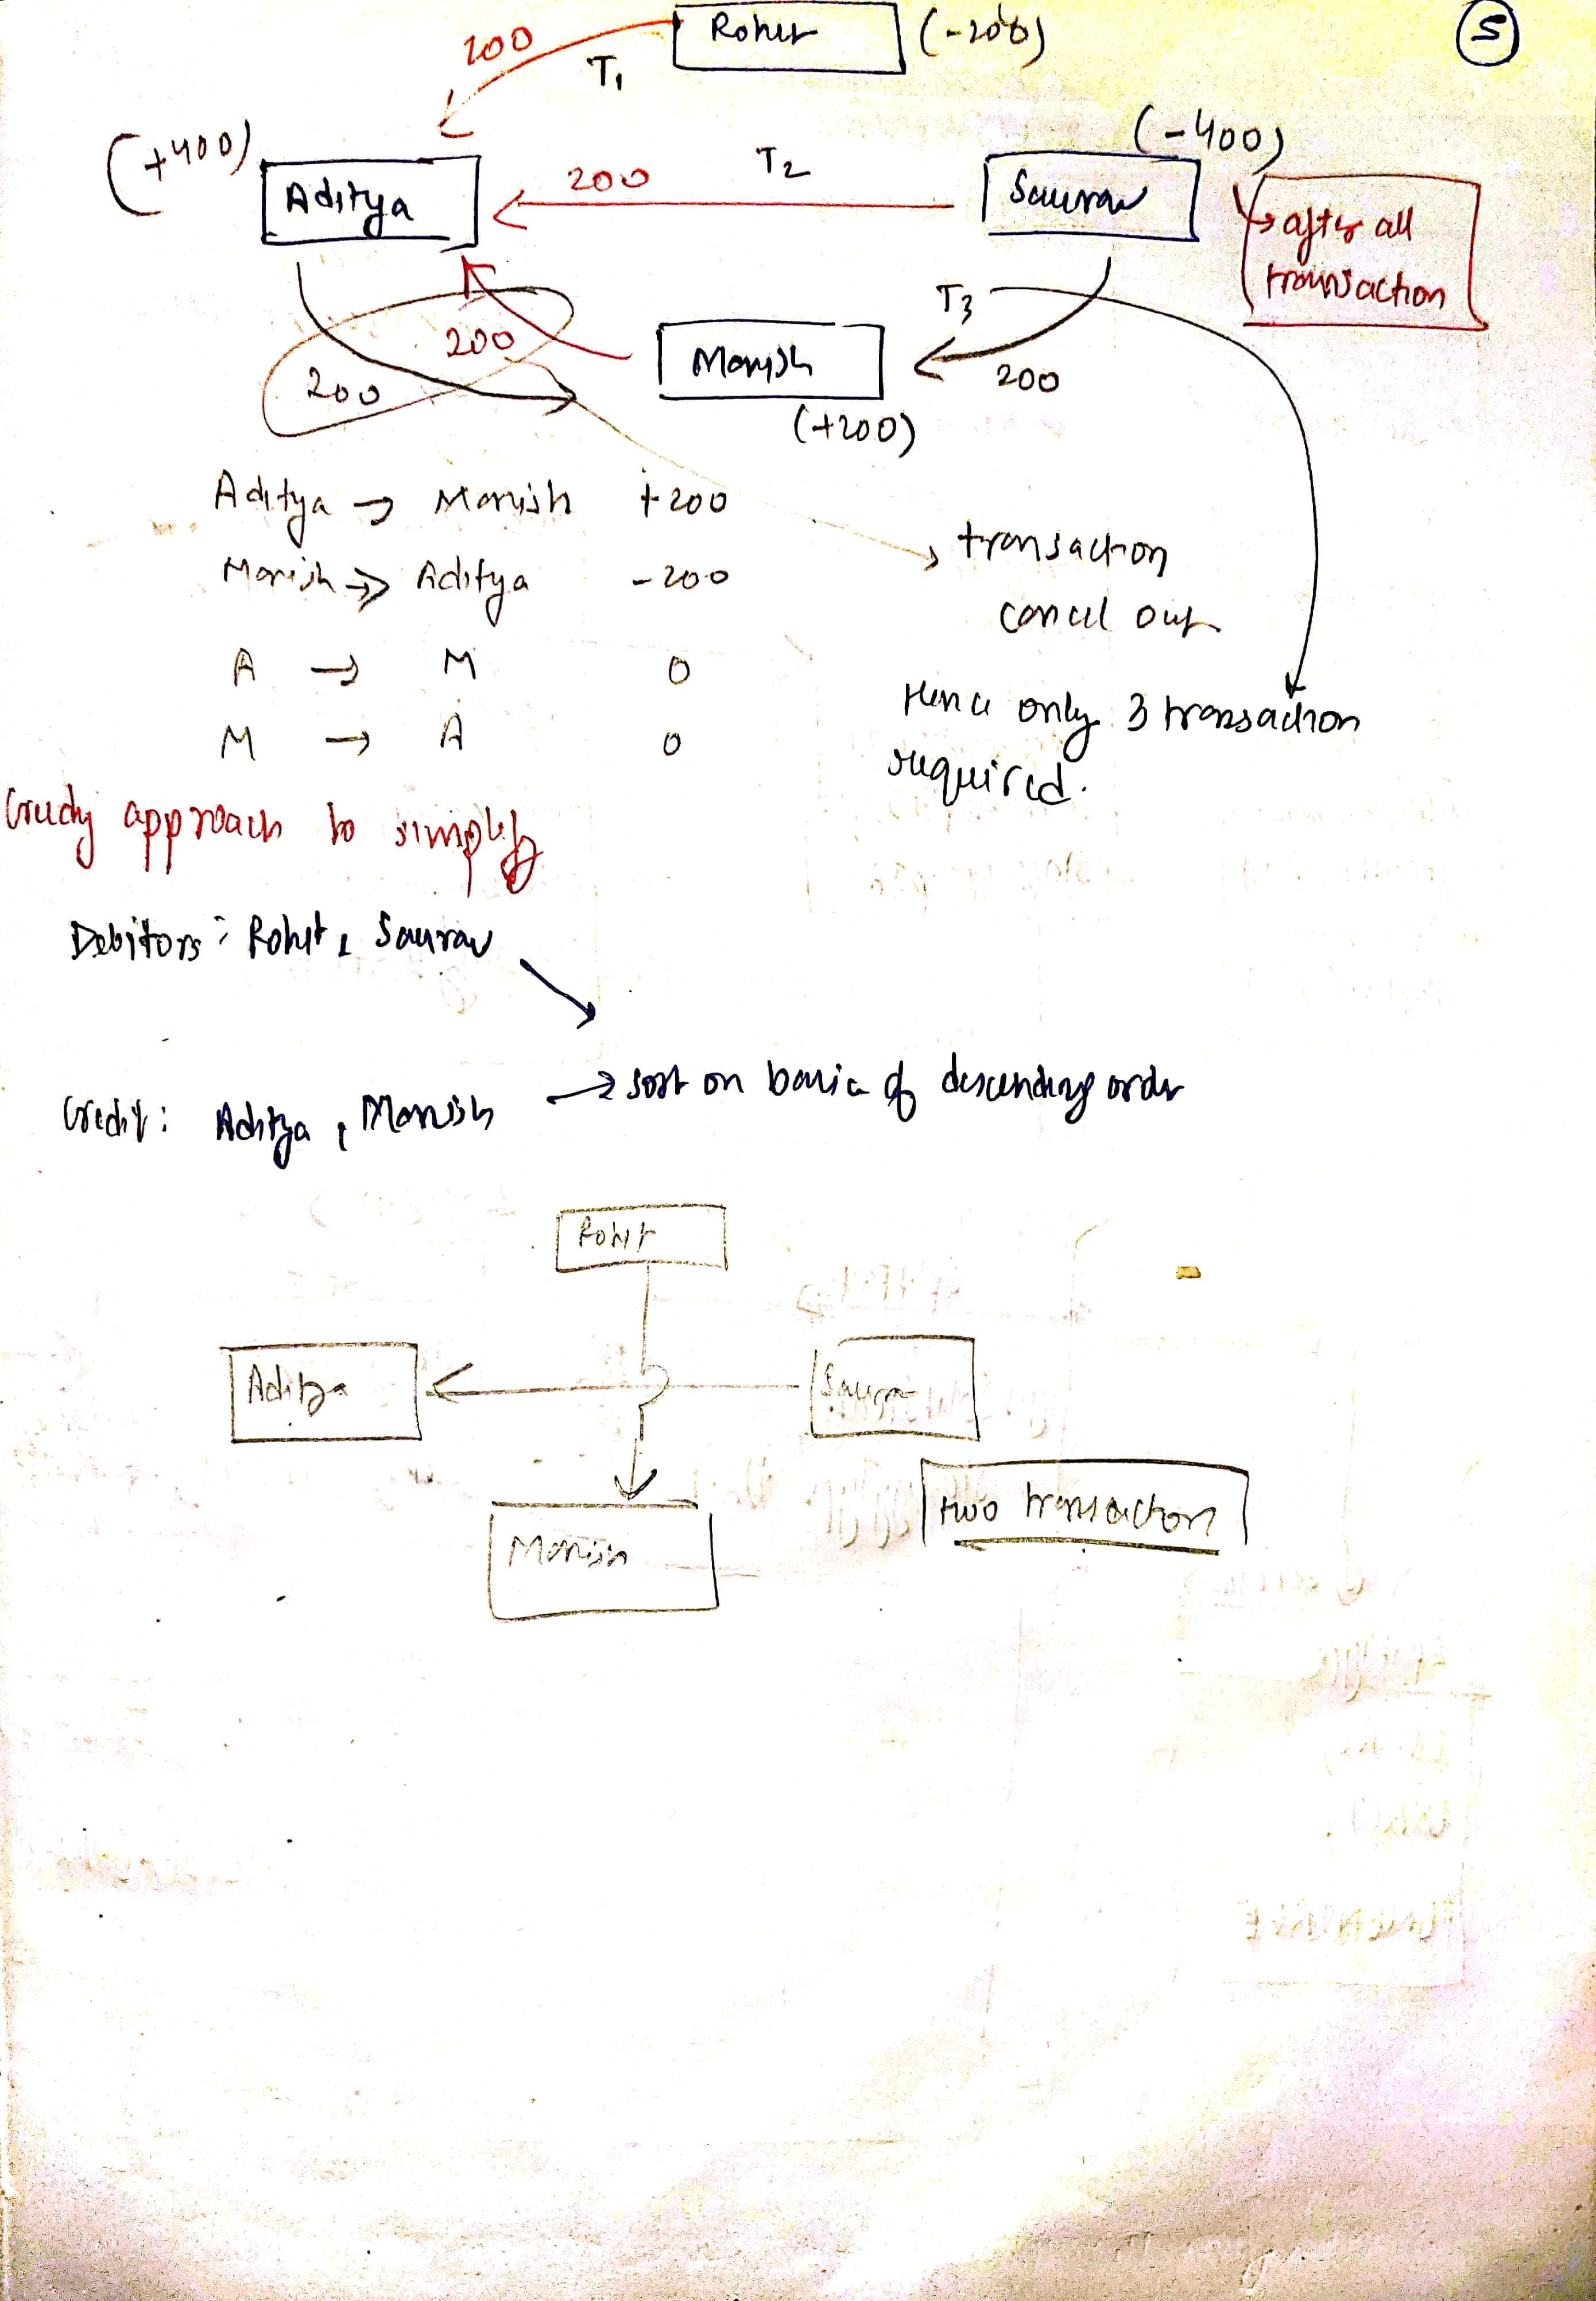 5
Rohit (-200)
200
T1
(+400)
Aditya
200
T2
(-400)
Saurav
after all
transaction
200
200
Manish
(+200)
T3
200
Aditya → Manish +200
Manish → Aditya -200
A → M 0
M → A 0
transaction
cancel out
Hence only 3 transaction
required.
Greedy approach to simplify
Debitors : Rohit, Saurav
Credit : Aditya, Manish → sort on basic of descending order
Rohit
Aditya
Saurav
Manish
two transaction